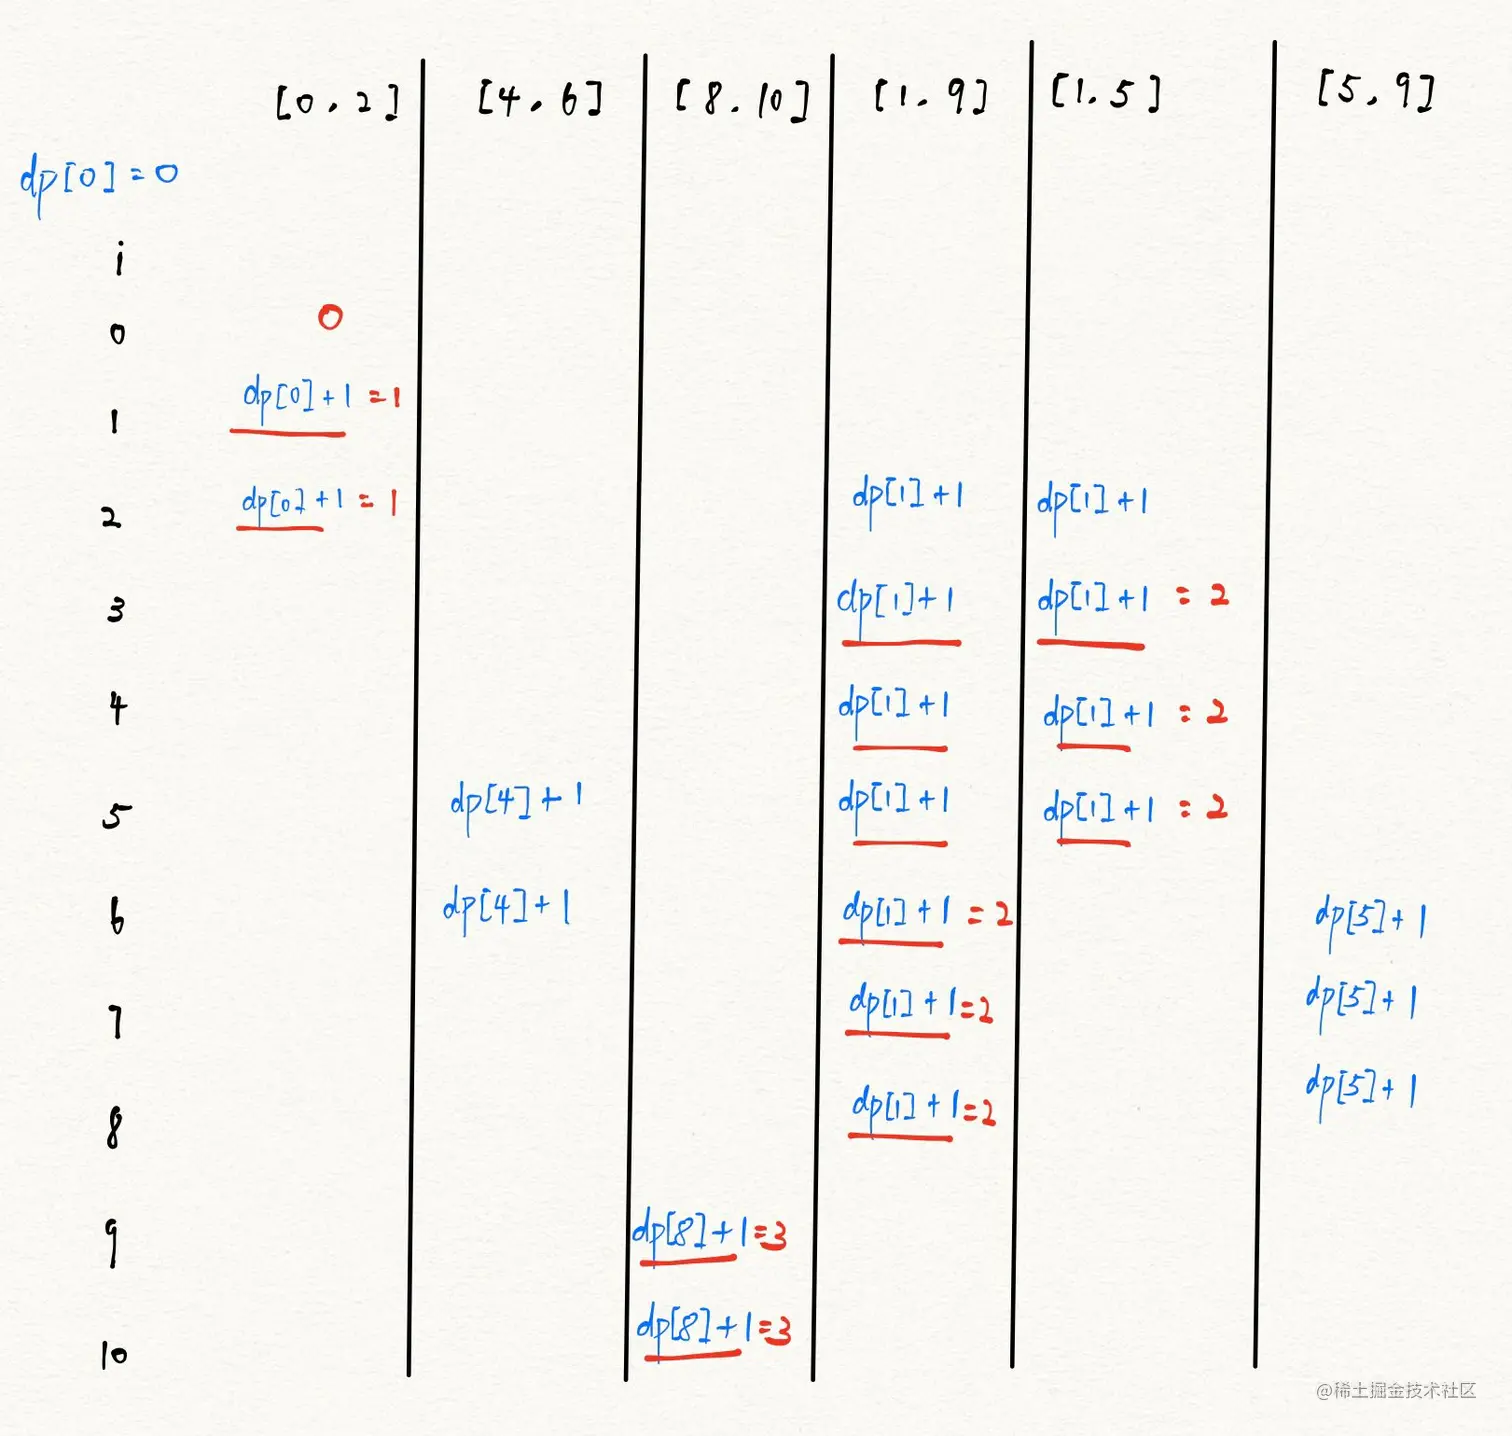 [0,2] [4,6] [8,10] [1,9] [1,5] [5,9]
dp[0]=0
i
0 0
1 dp[0]+1=1
2 dp[0]+1=1 dp[1]+1 dp[1]+1
3 dp[1]+1 dp[1]+1=2
4 dp[1]+1 dp[1]+1=2
5 dp[4]+1 dp[1]+1 dp[1]+1=2
6 dp[4]+1 dp[1]+1=2 dp[5]+1
7 dp[1]+1=2 dp[5]+1
8 dp[1]+1=2 dp[5]+1
9 dp[8]+1=3
10 dp[8]+1=3
@稀土掘金技术社区